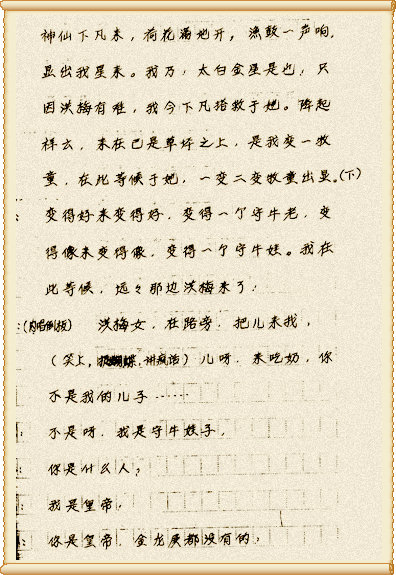 神仙下凡来，荷花满地开，渔鼓一声响，
显出我星来。我乃：太白金星是也，只
因洪梅有难，我今下凡搭救于她。降起
祥云，来在已是草坪之上，是我变一牧
童，在此等候于她，一变二变牧童出显。(下)
变得好来变得好，变得一个守牛老，变
得像来变得像，变得一个守牛娃。我在
此等候，远々那边洪梅来了：
：(内唱倒板) 洪梅女，在路旁，把儿来找，
(笑上，扑蝴蝶，讲疯话) 儿呀，来吃奶，你
不是我的儿子……
：不是呀，我是守牛娃子，
：你是什么人？
：我是皇帝，
：你是皇帝，金龙 都没有的，